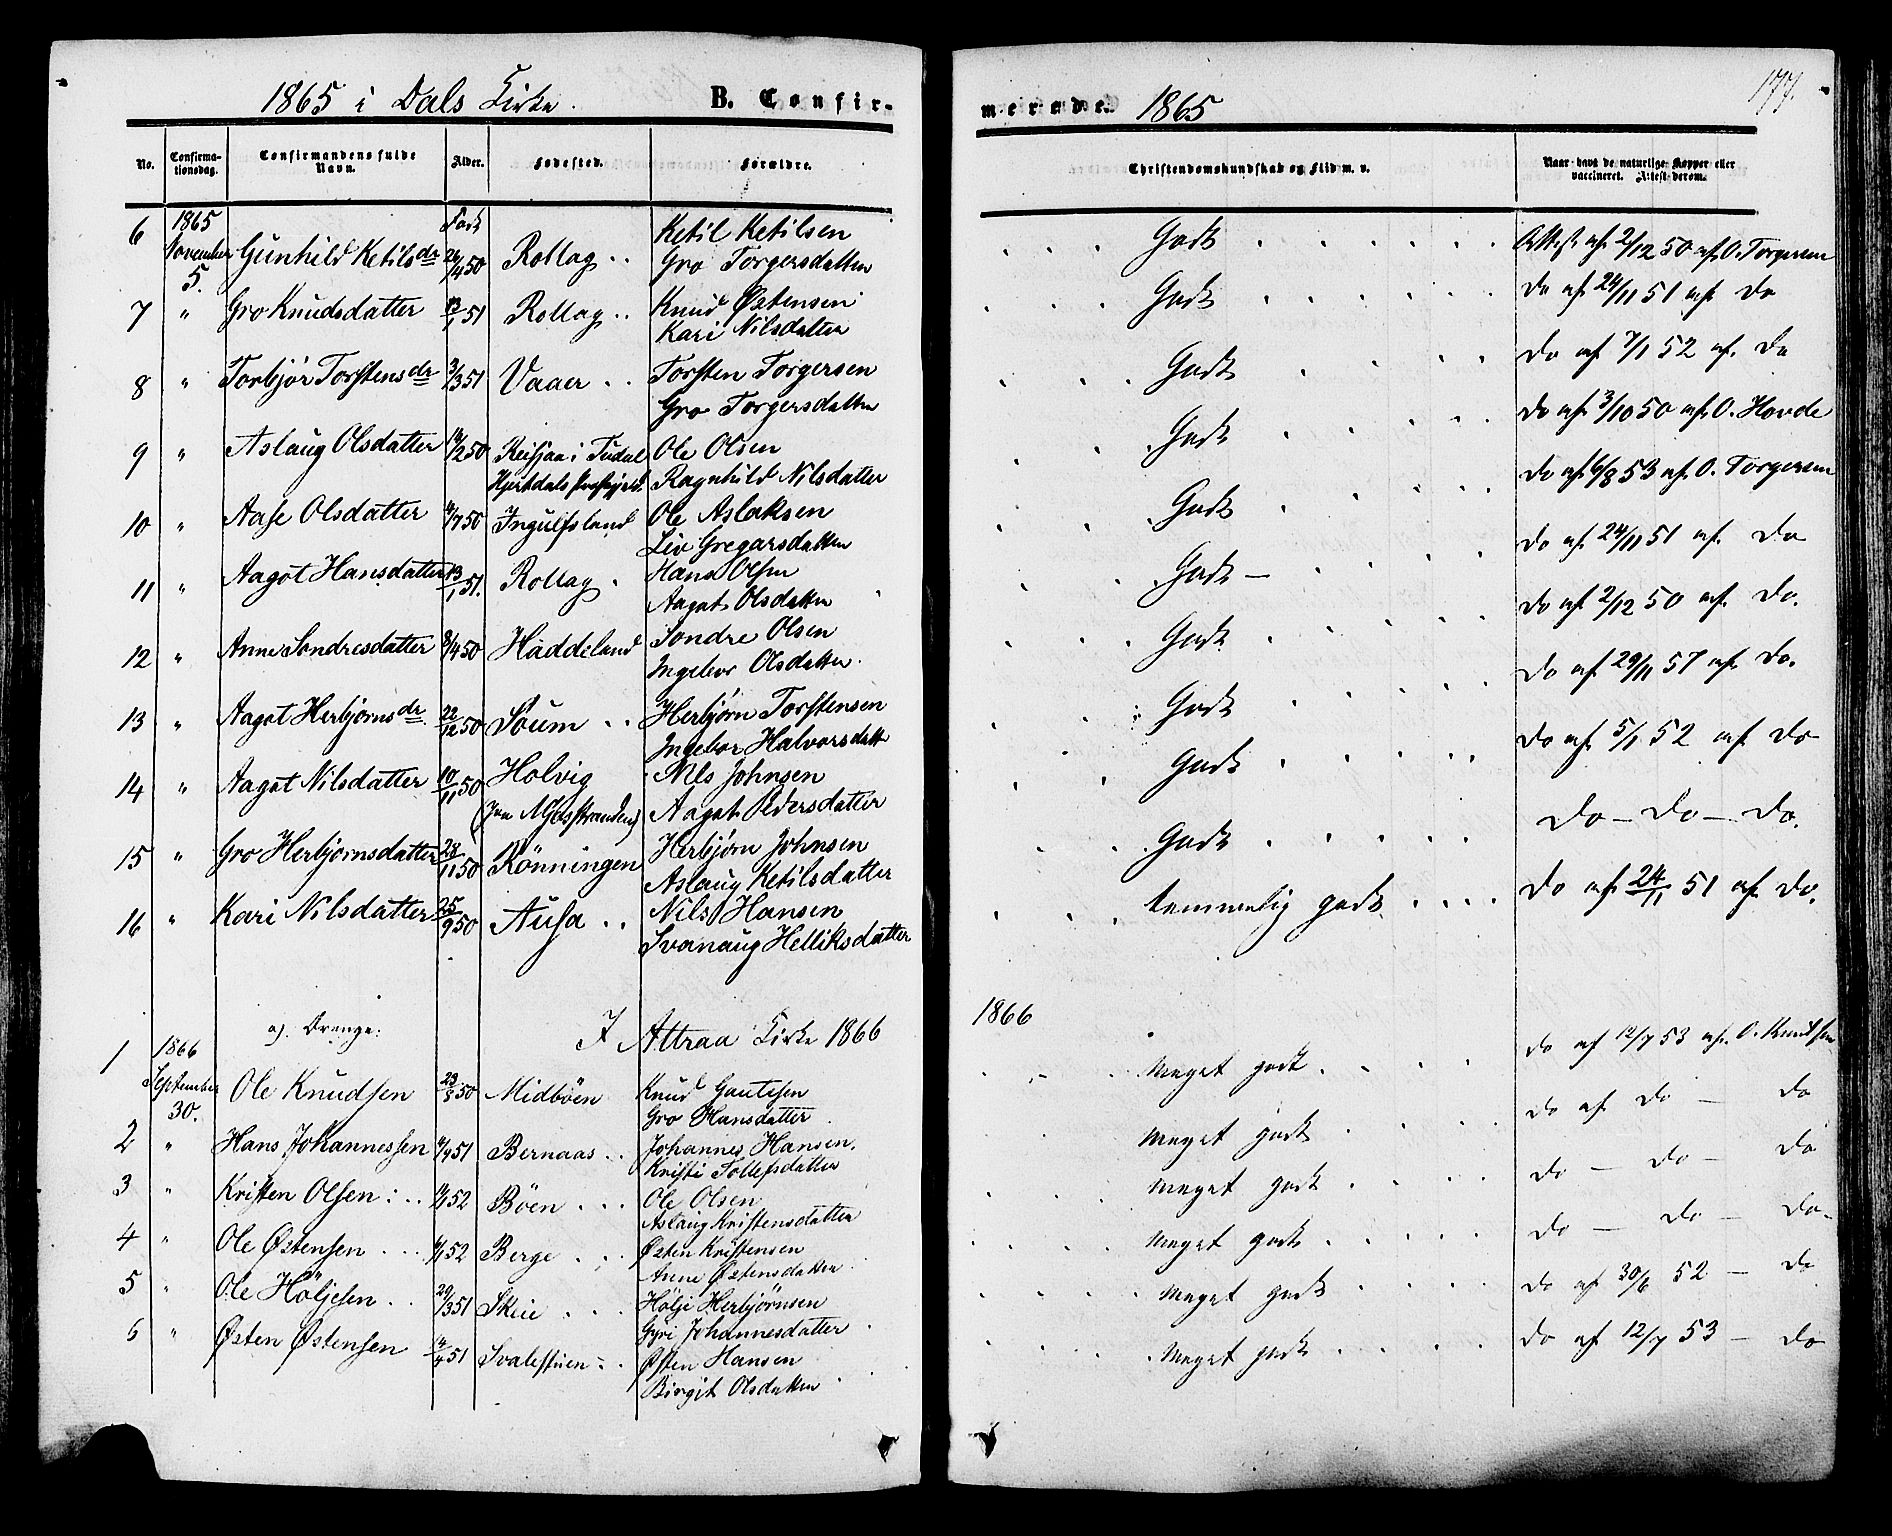 1865 i Dals Kirke. B. Confir-
No. Confirma-tionsdag. Confirmandens fulde Navn. Alder. Fødested. Forældre.
6 1865 November 5. Gunhild Ketilsdr Født 24/4 50 Rollag .. Ketil Ketilsen
Gro Torgersdatter
7 " Gro Knudsdatter 13/1 51 Rollag .. Knud Østensen
Kari Nilsdatter
8 " Torbjør Torstensdr 3/3 51 Vaaer .. Torsten Torgersen
Gro Torgersdatter
9 " Aslaug Olsdatter /2 50 i Tudal Ole Olsen
Hjertdals Ragnhild Nilsdatter
10 " Aase Olsdatter /7 50 Ingulfsland Ole Aslaksen
Liv Gregarsdatter
11 " Aagot Hansdatter 13/1 51. Rollag . Hans Olsen
Aagot Olsdatter
12 " Anne Sondresdatter 8/4 50 Haddeland Sondre Olsen
Ingebor Olsdatter.
13 " Aagot Herbjørnsdr. 22/12 50 Soum .. Herbjørn Torstensen
Ingebor Halvorsdatt
14 " Aagot Nilsdatter 10/11 50 Holvig Nils Johnsen
Aagot Pedersdatter
15 " Gro Herbjørnsdatter 28/11 50 Rönningen Herbjørn Johnsen
Aslaug Ketilsdatter
16 " Kari Nilsdatter 25/9 50 Ausa .. Nils Hansen
Svanaug Helliksdatter
a). Drenge: I Attraa Kirke 1866
1 1866 September 30. Ole Knudsen 50 Midböen Knud Gautesen
Gro Hansdatter
2 " Hans Johannessen 51 Bernaas .. Johannes Hansen.
Kristi Tollefsdatter
3 " Kristen Olsen : .. 52 Böen ... Ole Olsen
Aslaug Kristensdatter
4 " Ole Østensen ... 52 Berge ... Østen Kristensen
Anne Østensdatter
5 " Ole Höljesen .. 29/3 51 Skeie ... Hölje Herbjörnsen
Gyri Johannesdatter
6 " Østen Østensen 51 Svalestuen .. Østen Hansen
Birgit Olsdatter
merede. 1865 177.
Christendomskundskab og Flid m. v. Naar havt de naturlige Kopper eller vaccineret. Attest derom.
Godt Attest af 2/12 50 af O. Torgersen
Godt Do af 24/11 51 af Do
Godt Do af 7/1 52 af. Do
Godt Do af 3/10 50 af O. Hovde
Godt Do af 6/8 53 af O. Torgersen
Godt Do af 24/11 51 af Do
Godt Do af 2/12 50 af. Do.
Godt Do af 29/11 57 af. Do.
Godt Do af 5/1 52 af Do
Godt Do - Do - Do.
temmelig godt Do af 24/11 51 af Do.
1866
meget godt Do af 12/7 53 af. O. Knudsen
meget godt Do af Do - Do
meget godt Do - Do - Do
meget godt Do - Do - Do
meget godt Do af 30/6 52 - Do
meget godt Do af 12/7 53 - Do